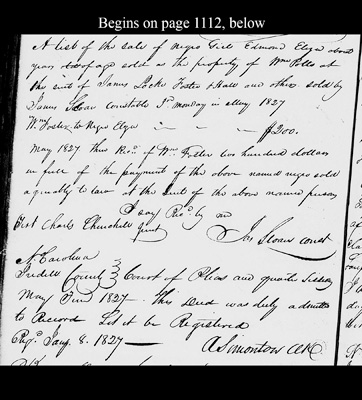 Begins on page 1112, below
A list of the sale of Negro Girl Edmond Eliza about
years of age sold as the property of Wm Potts at
the suit of James Locke Foster & Hall and others sold by
James Sloan Constable 3d monday in May 1827
Wm Foster to Negro Eliza - - - $200.
May 1827 then Recd of Wm Foster two hundred dollars
in full of the payment of the above named negro sold
agreeably to law at the suit of the above named persons
I say Recd by me
Test Charls Churchill Jas Sloan Const
jurat
N Carolina
Iredell County Court of Pleas and quarter Session
May Term 1827 this Deed was duly admitted
to Record Let it be Registered
Regd Aug 8. 1827 — A Simonton CC